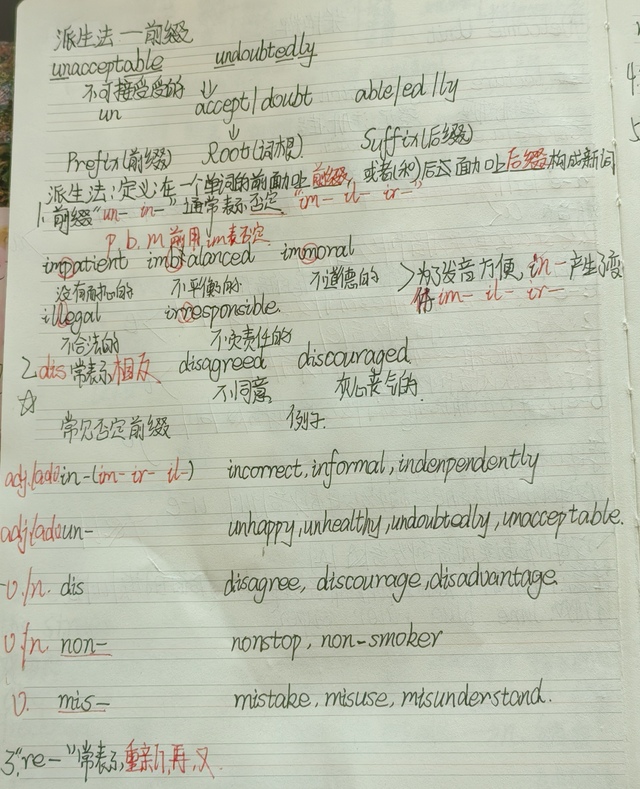 派生法一前缀
unacceptable undoubtedly
不可接受的
un accept/doubt able/ed/ly
Prefix(前缀) Root(词根) Suffix(后缀)
派生法:定义:在一个单词的前面加上前缀,或者(和)后面加上后缀构成新词
1.前缀"un- in-"通常表示否定 "im- il- ir-"
p b.m前用im表否定
impatient imbalanced immoral
没有耐心的 不平衡的 不道德的 >为了发音方便,in-产生了变
体im- il- ir-
illegal irresponsible.
不合法的 不负责任的
2.dis常表示相反 disagreed discouraged.
☆ 不同意 灰心丧气的
常见否定前缀 例子.
adj./adv in-(im- ir- il-) incorrect,informal,indenpendently
adj./adv un- unhappy,unhealthy,undoubtedly,unacceptable.
v./n. dis disagree, discourage,disadvantage.
v./n. non- nonstop, non-smoker
v. mis- mistake, misuse, misunderstand.
3."re-"常表示重新,再,又.
4
5